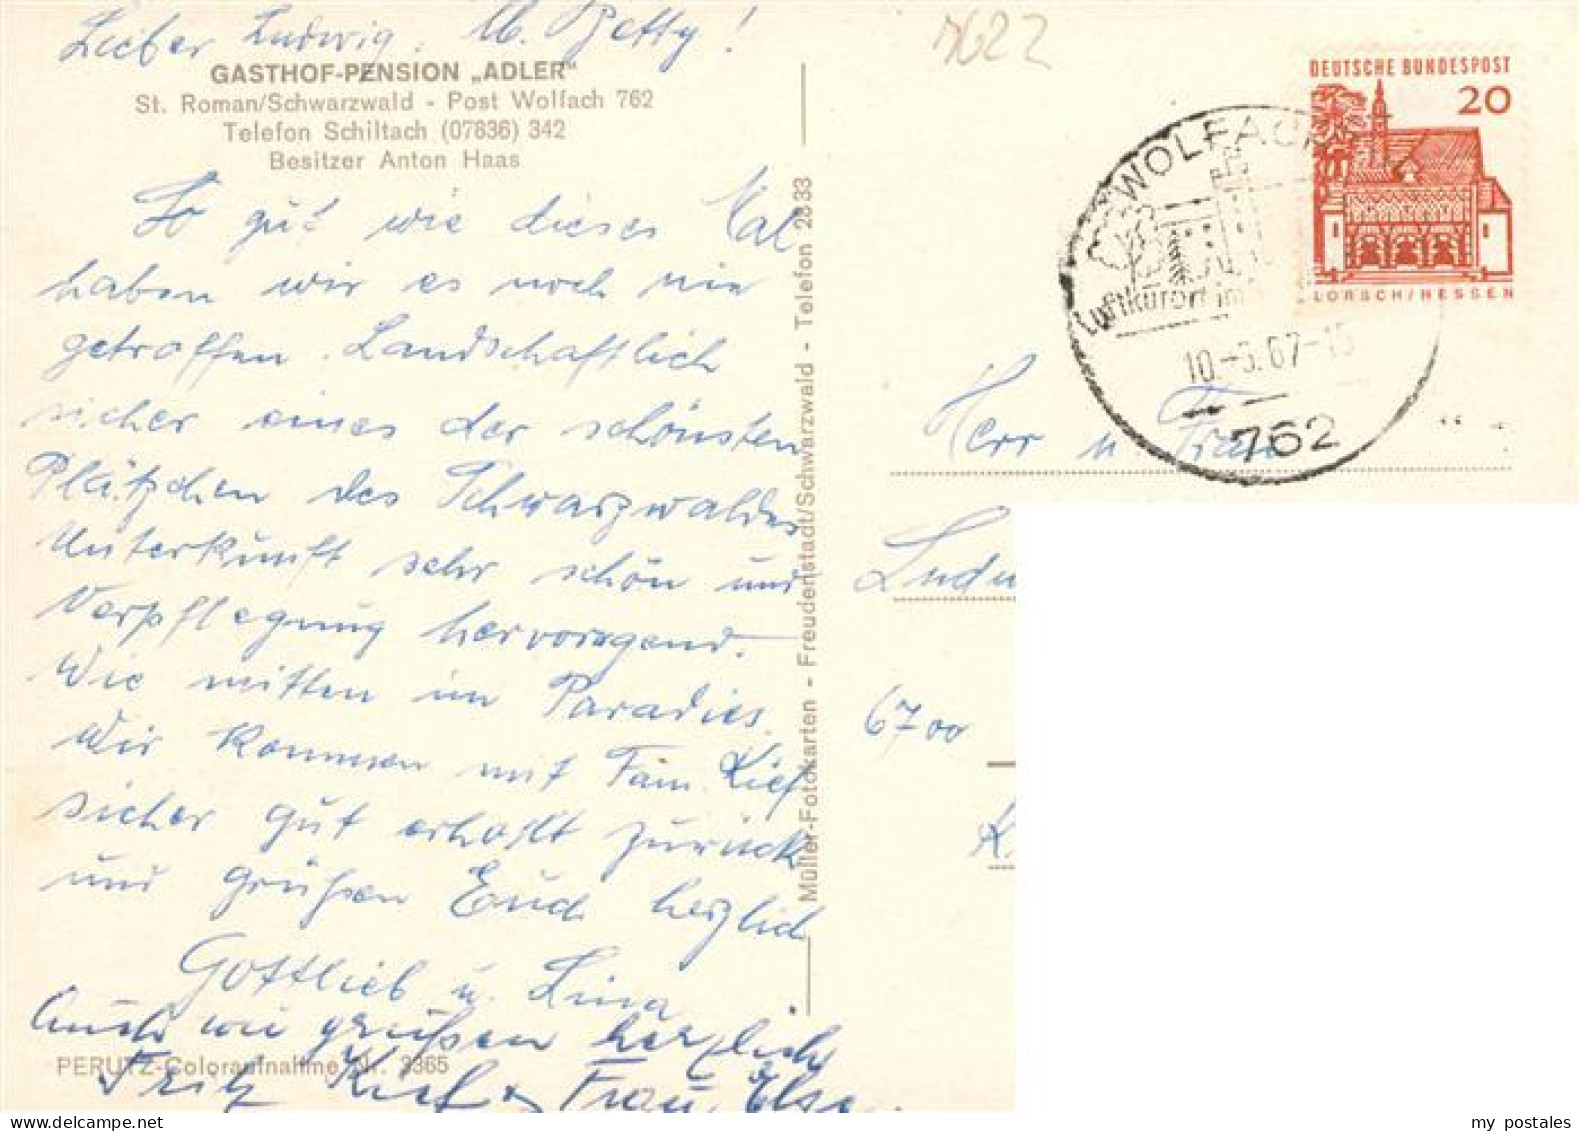 Lieber Ludwig, lb. Betty!
GASTHOF-PENSION „ADLER"
St. Roman/Schwarzwald - Post Wolfach 762
Telefon Schiltach (07836) 342
Besitzer Anton Haas
So gut wie dieses Mal
haben wir es noch nie
getroffen. Landschaftlich
sicher eines der schönsten
Plätzchen des Schwarzwaldes
Unterkunft sehr schön und
Verpflegung hervorragend.
Wie mitten im Paradies.
Wir kommen mit Fam. Kief
sicher gut erholt zurück
und grüßen Euch herzlich
Gottlieb u. Lina
Auch wir grüßen herzlich
Fritz Kief u Frau Else
PERUTZ-Coloraufnahme Nr. 3365
Müller-Fotokarten - Freudenstadt/Schwarzwald - Telefon 2833
7622
DEUTSCHE BUNDESPOST
20
LORSCH/HESSEN
WOLFACH
Luftkurort im
10.-5.67-15
762
Herr u Frau
Ludw
6700
my postales